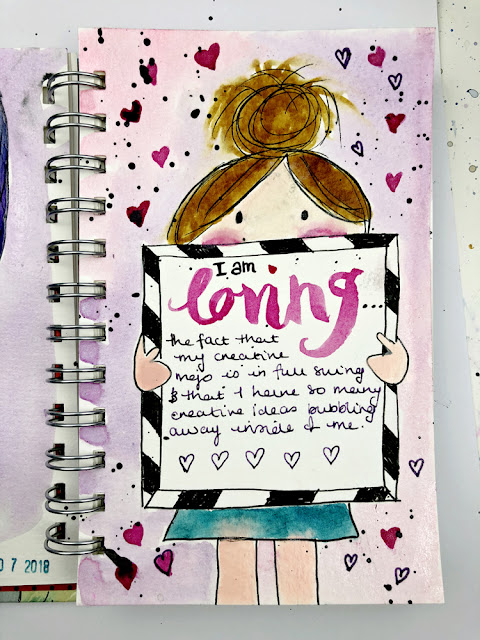 I am
loving....
the fact that
my creative
mojo is in full swing
& that I have so many
creative ideas bubbling
away inside of me.
07 2018